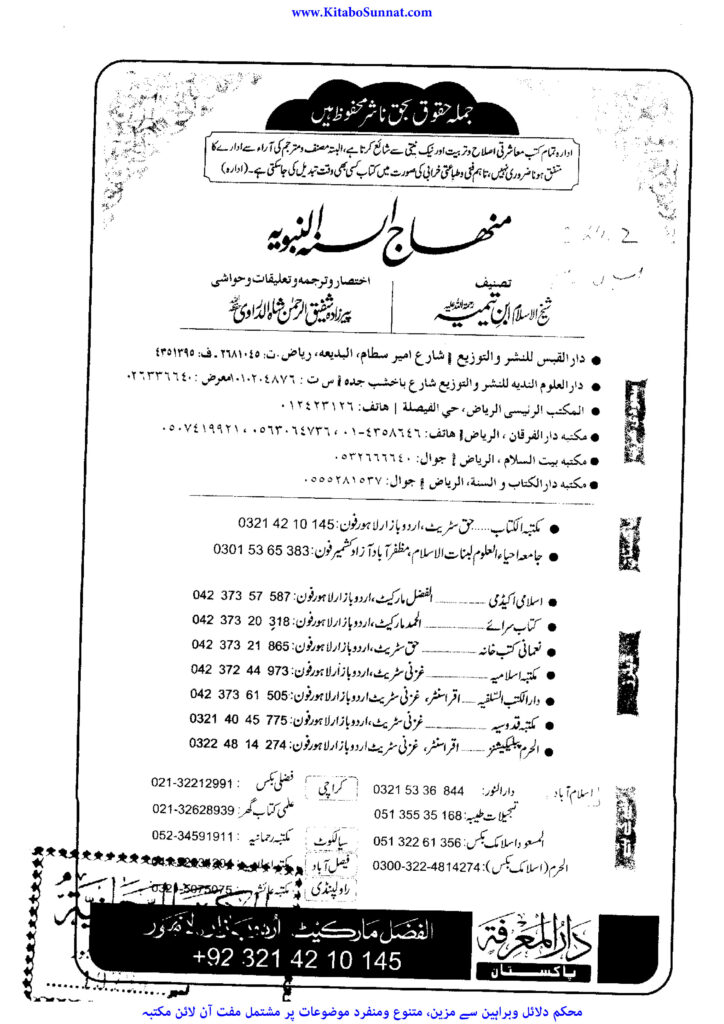 www.KitaboSunnat.com
جملہ حقوق بحق ناشر محفوظ ہیں
ادارہ تمام کتب معاشرتی اصلاح و تربیت اور نیک نیتی سے شائع کرتا ہے، البتہ مصنف و مترجم کی آراء سے ادارے کا
متفق ہونا ضروری نہیں، تاہم فنی و طباعتی خرابی کی صورت میں کتاب کسی بھی وقت تبدیل کی جاسکتی ہے۔ (ادارہ)
منهاج السنه النبويه
تصنیف
شیخ الاسلام ابن تیمیہ رحمۃ اللہ علیہ
اختصار و ترجمہ و تعلیقات و حواشی
پیرزادہ شفیق الرحمٰن شاہ الدراوی
● دار القبس للنشر والتوزيع | شارع امير سطام، البديعه، رياض.ت: ٢٦٨١٠٤٥ ـ ف: ٤٣٥١٣٩٥
● دار العلوم النديه للنشر والتوزيع شارع باخشب جده | س ت : ٤٨٧٦٢٠١٠١٠معرض : ٠٢٦٣٣٦٦٤٠
● المكتب الرئيسى الرياض، حي الفيصلة | هاتف: ٠١٢٤٢٣١٢٦
● مكتبه دار الفرقان ، الرياض| هاتف: ٤٣٥٨٦٤٦-٠١ ، ٠٥٦٣٠٦٤٧٣٦ ، ٠٥٠٧٤١٩٩٢١
● مكتبه بيت السلام ، الرياض | جوال: ٠٥٣٢٦٦٦٦٤٠
● مكتبه دار الكتاب و السنة، الرياض | جوال: ٠٥٥٥٢٨١٥٣٧
● مکتبہ الکتاب.....حق سٹریٹ، اردو بازار لاہور فون: 0321 42 10 145
● جامعہ احیاء العلوم لبنات الاسلام، مظفر آباد آزاد کشمیر فون: 0301 53 65 383
● اسلامی اکیڈمی ـــــ الفضل مارکیٹ، اردو بازار لاہور فون: 042 373 57 587
● کتاب سرائے ـــــ الحمد مارکیٹ، اردو بازار لاہور فون: 042 373 20 318
● نعمانی کتب خانہ ـــــ حق سٹریٹ، اردو بازار لاہور فون: 042 373 21 865
● مکتبہ اسلامیہ ـــــ غزنی سٹریٹ، اردو بازار لاہور فون: 042 372 44 973
● دار الکتب السلفیہ ـــــ اقراء سنٹر، غزنی سٹریٹ اردو بازار لاہور فون: 042 373 61 505
● مکتبہ قدوسیہ ـــــ غزنی سٹریٹ، اردو بازار لاہور فون: 0321 40 45 775
● الحرم پبلیکیشنز ـــــ اقراء سنٹر، غزنی سٹریٹ اردو بازار لاہور فون: 0322 48 14 274
اسلام آباد
دارالنور: 0321 53 36 844
تجلیات طیبہ: 051 355 35 168
المسعود اسلامک بکس: 051 322 61 356
الحرم (اسلامک بکس): 0300-322-4814274
کراچی
فضلی بکس : 021-32212991
علمی کتاب گھر: 021-32628939
سیالکوٹ
مکتبہ رحمانیہ : 052-34591911
فیصل آباد
راولپنڈی
مکتبہ عائشہ
دار المعرفة
پاکستان
الفضل مارکیٹ اردو بازار لاہور
+92 321 42 10 145
محکم دلائل وبراہین سے مزین، متنوع ومنفرد موضوعات پر مشتمل مفت آن لائن مکتبہ